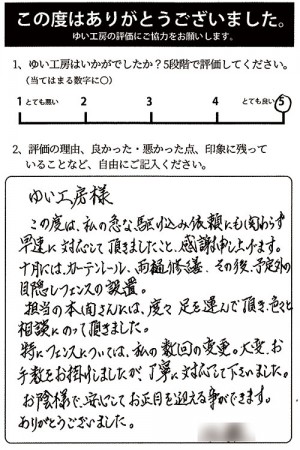 この度はありがとうございました。
ゆい工房の評価にご協力をお願いします。
1、ゆい工房はいかがでしたか？5段階で評価してください。
（当てはまる数字に○）
1 とても悪い 2 3 4 とても良い 5
2、評価の理由、良かった・悪かった点、印象に残って
いることなど、自由にご記入ください。
ゆい工房様
この度は、私の急な駆け込み依頼にも関わらず
早速に対応して頂きましたこと、感謝申し上げます。
十月には、カーテンレール、雨樋修繕、その後、予定外の
目隠しフェンスの設置。
担当の本間さんには、度々足を運んで頂き、色々と
相談にのって頂きました。
特にフェンスについては、私の数回の変更。大変、お
手数をお掛けしましたが、丁寧に対応して下さいました。
お陰様で、安心してお正月を迎える事ができます。
ありがとうございました。